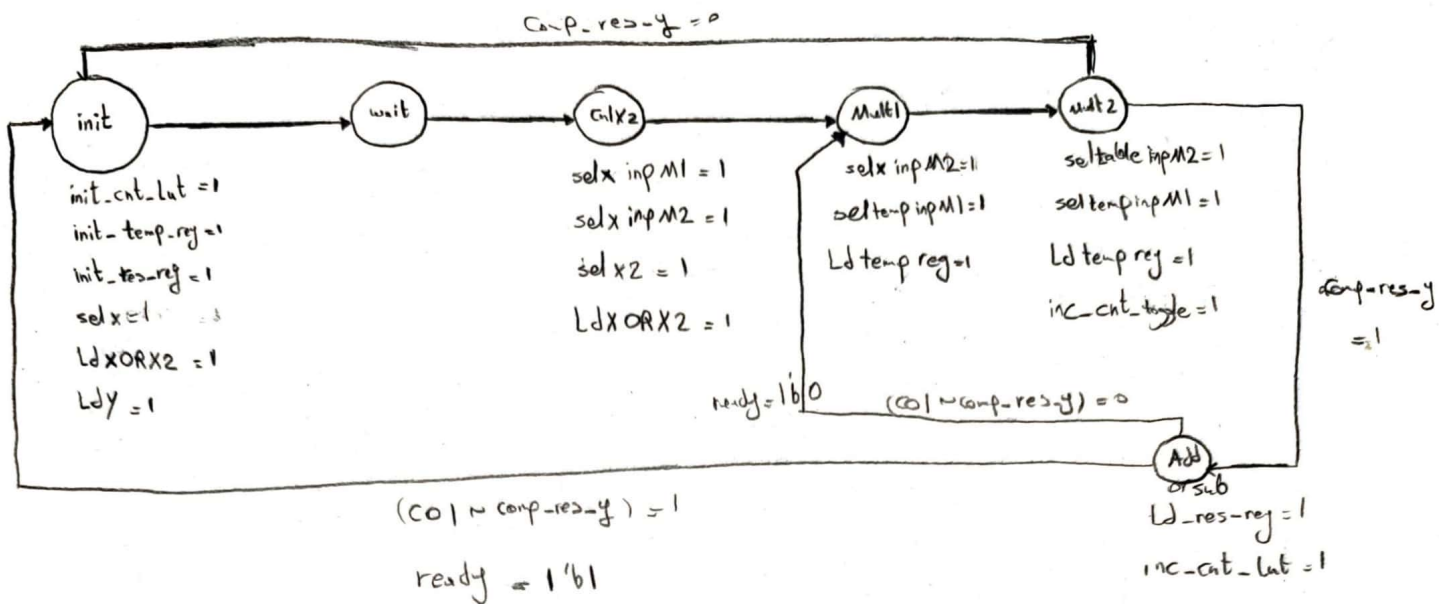 Comp_res_y = 0
init
wait
CalX2
Mult1
mult2
init_cnt_lut = 1
init_temp_reg = 1
init_res_reg = 1
selx = 1
LdXORX2 = 1
LdY = 1
selx inpM1 = 1
selx inpM2 = 1
selx2 = 1
LdXORX2 = 1
selx inpM2 = 1
seltempinpM1 = 1
Ldtemp reg = 1
seltable inpM2 = 1
seltempinpM1 = 1
Ldtemp reg = 1
inc_cnt_
= 1
comp-res-y
= 1
ready = 1'b0
(CO | ~comp-res-y) = 0
Add
or sub
Ld_res-reg = 1
inc_cnt_lut = 1
(CO | ~ comp-res-y) = 1
ready = 1'b1